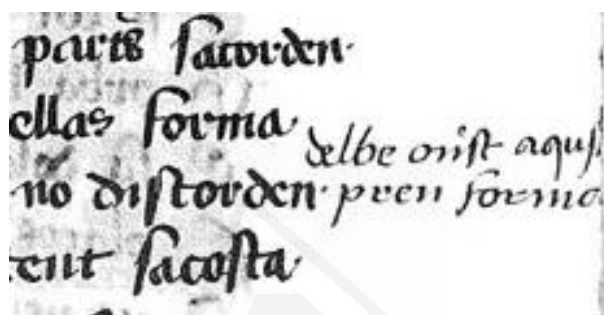 parts sacorden·
ellas forma·
delbe onist aquest
no distorden· pren forma
ent sacosta·